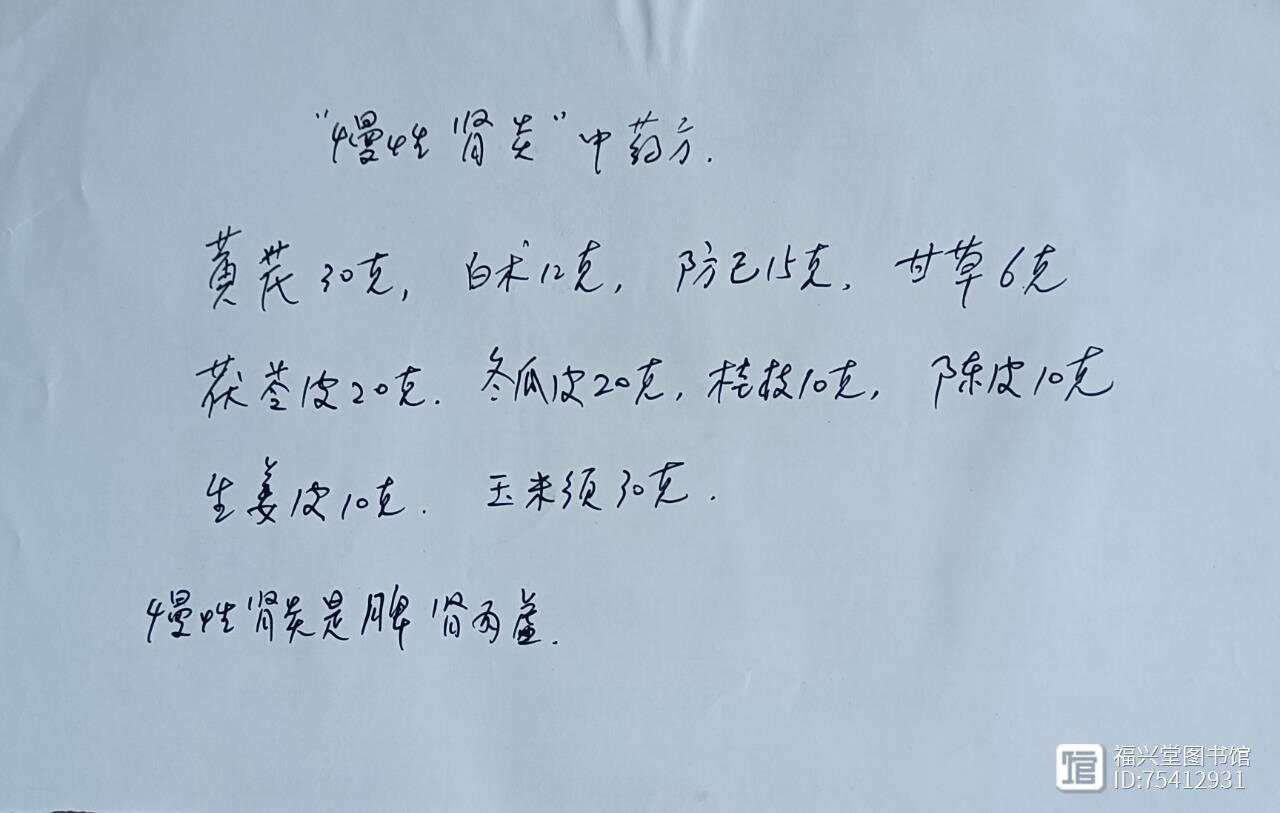 "慢性肾炎"中药方.
黄芪30克, 白术12克, 防己15克, 甘草6克
茯苓皮20克. 冬瓜皮20克, 桂枝10克, 陈皮10克
生姜皮10克. 玉米须30克.
慢性肾炎是脾肾两虚.
福兴堂图书馆
ID:75412931